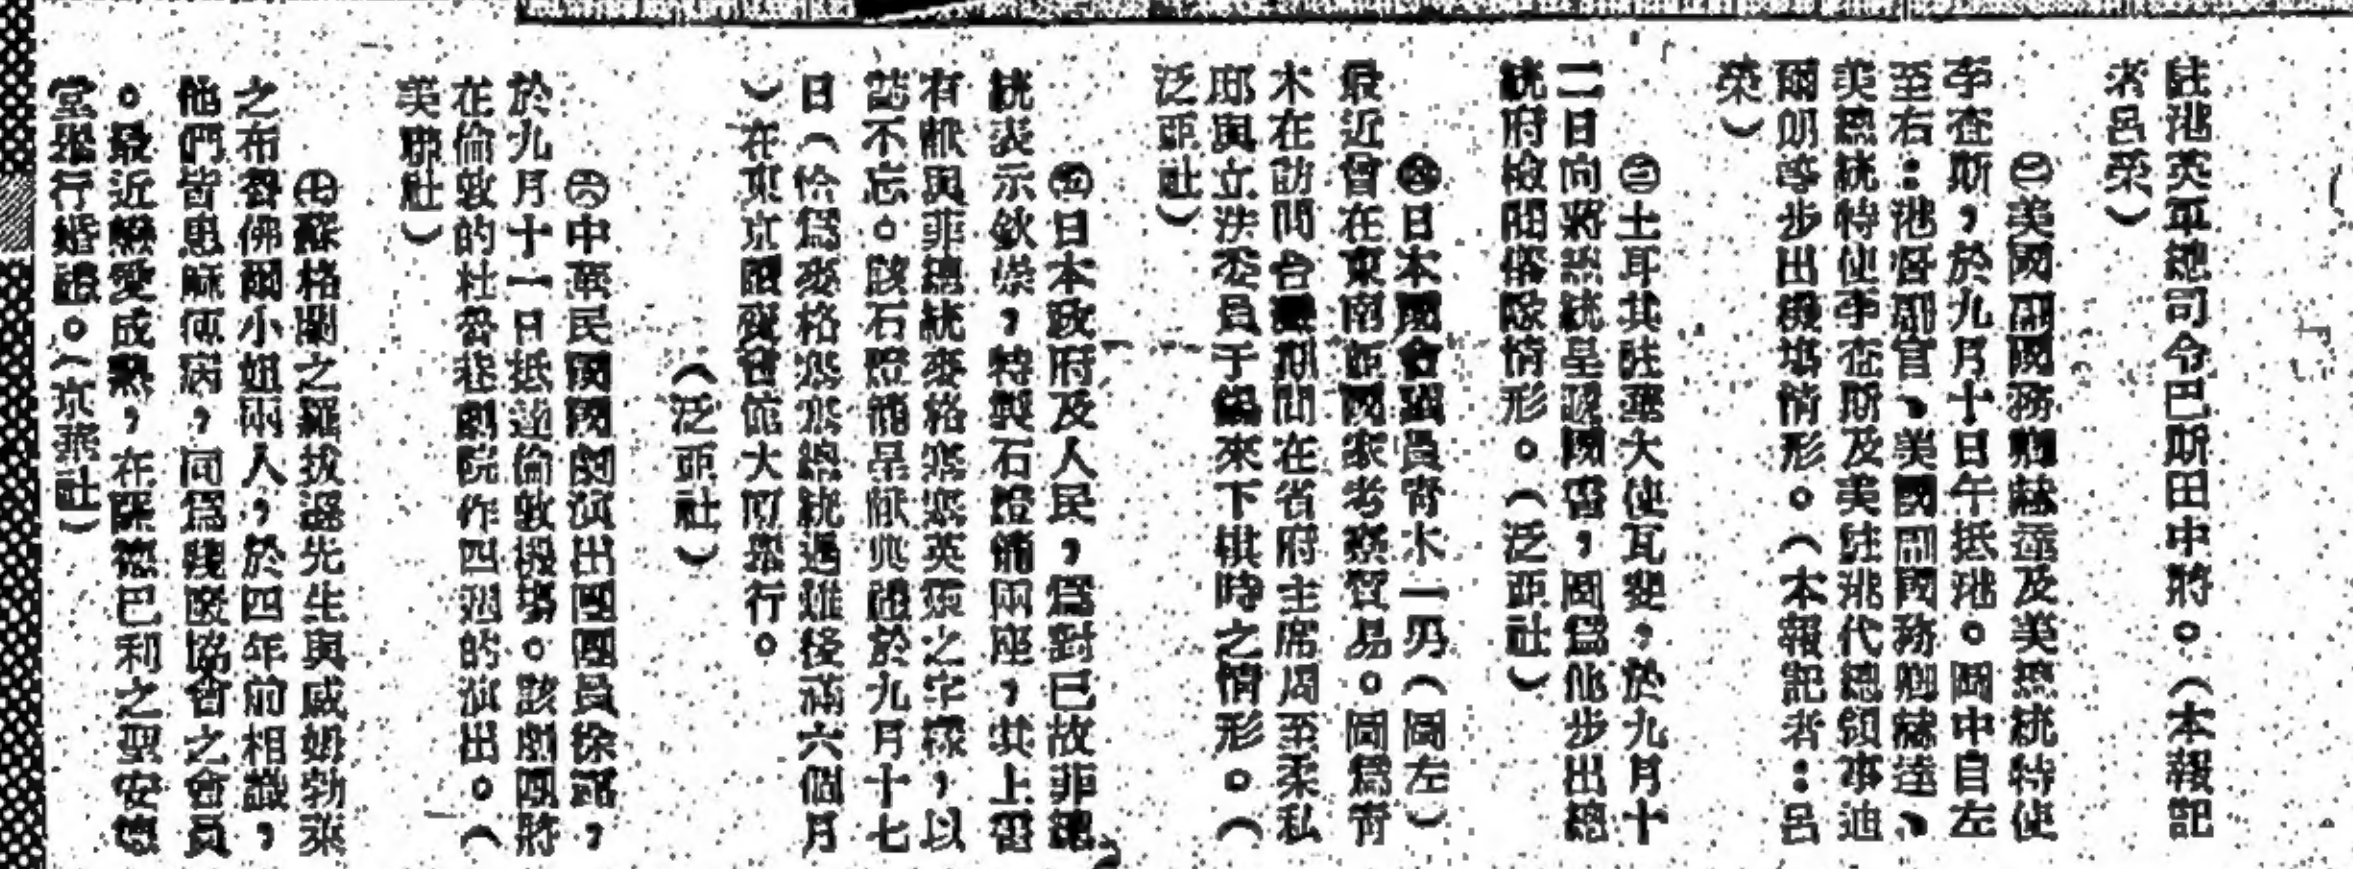 駐港英軍總司令巴斯田中將。（本報記
者呂榮）
㊁美國副國務卿赫達及美總統特使
李查斯，於九月十日午抵港。圖中自左
至右：港督副官、美國副國務卿赫達、
美總統特使李查斯及美駐港代總領事迪
爾朗等步出機塲情形。（本報記者：呂
榮）
㊂土耳其駐華大使瓦斐，於九月十
二日向蔣總統呈遞國書，圖爲他步出總
統府檢閱儀隊情形。（泛亞社）
㊃日本國會議員靑木一男（圖左）
最近曾在東南亞國家考察貿易。圖爲靑
木在訪問台灣期間在省府主席周至柔私
邸與立法委員于錫來下棋時之情形。（
泛亞社）
㊄日本政府及人民，爲對已故菲總
統表示欽崇，特製石燈籠兩座，其上書
有獻與菲總統麥格塞塞英靈之字樣，以
誌不忘。該石燈籠呈獻典禮於九月十七
日（恰爲麥格塞塞總統遇難後滿六個月
）在東京國會館大厦舉行。
（泛亞社）
㊅中華民國國劇演出團團員徐露，
於九月十一日抵達倫敦機塲。該劇團將
在倫敦的杜魯菲劇院作四週的演出。（
美聯社）
㊆蘇格蘭之羅拔遜先生與威姆勃萊
之布魯佛爾小姐兩人，於四年前相識，
他們皆患麻痺病，同爲殘廢協會之會員
。最近戀愛成熟，在陳德巴利之聖安德
堂舉行婚禮。（京華社）